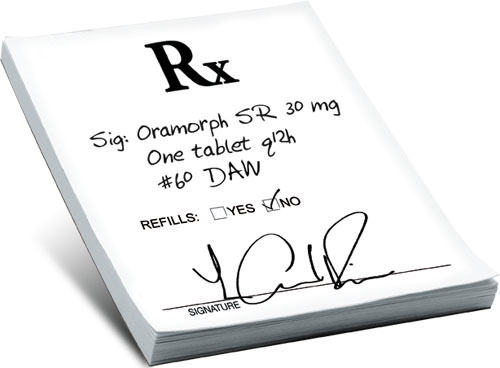 Rx
Sig: Oramorph SR 30 mg
One tablet q12h
#60 DAW
REFILLS: YES NO
SIGNATURE